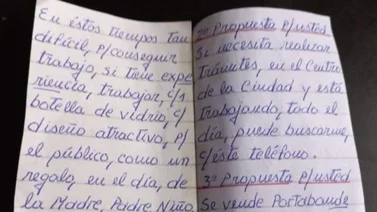 En éstos tiempos tan
dificil, p/conseguir
trabajo, si tiene expe
riencia, trabajar, c/s
botella de vidrio, c/
diseño atractivo, p/
el público, como un
regalo, en el día, de
la Madre, Padre Niño
2ª Propuesta p/usted
Si necesita realizar
trámites, en el Centro
de la Ciudad y está
trabajando, todo el
día, puede buscarme,
c/éste teléfono.
3ª Propuesta p/usted
Se vende Portabande